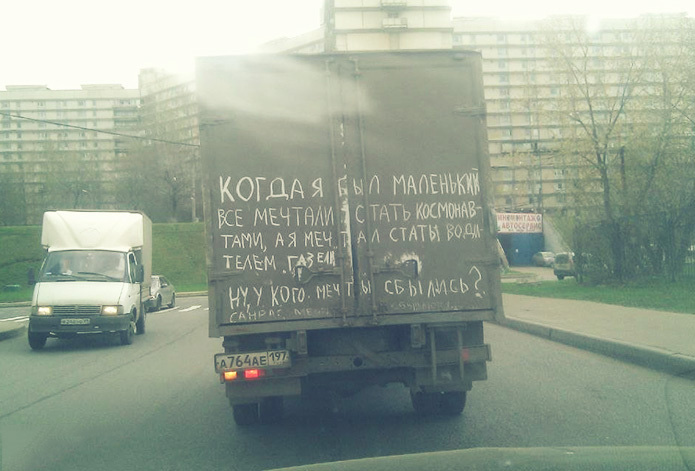 КОГДА Я БЫЛ МАЛЕНЬКИЙ
ВСЕ МЕЧТАЛИ СТАТЬ КОСМОНАВ-
ТАМИ, А Я МЕЧТАЛ СТАТЬ ВОДИ-
ТЕЛЕМ ГАЗЕЛИ
НУ, У КОГО МЕЧТЫ СБЫЛИСЬ?
А764АЕ 197
ШИНОМОНТАЖ
АВТОСЕРВИС